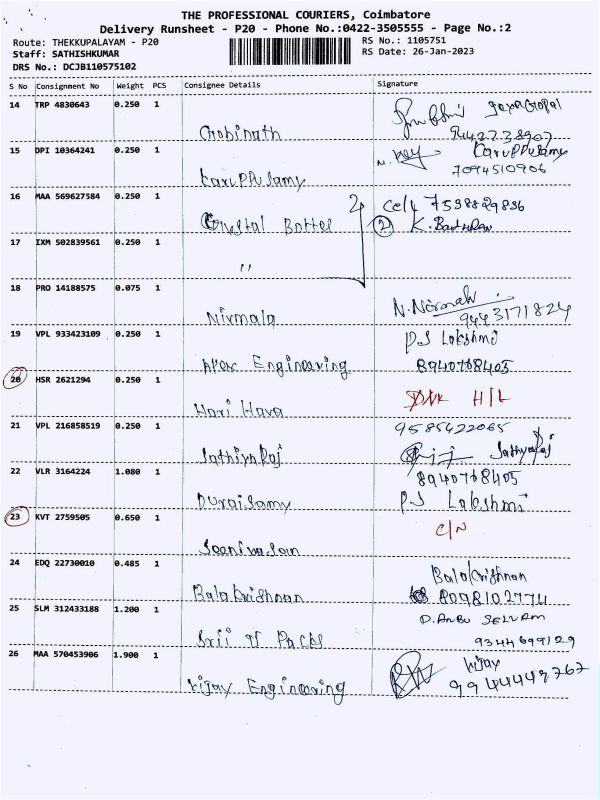 THE PROFESSIONAL COURIERS, Coimbatore
Delivery Runsheet - P20 - Phone No.:0422-3505555 - Page No.:2
Route: THEKKUPALAYAM - P20 RS No.: 1105751
Staff: SATHISHKUMAR RS Date: 26-Jan-2023
DRS No.: DCJB110575102
S No Consignment No Weight PCS Consignee Details Signature
14 TRP 4830643 0.250 1
Gobinath
15 DPI 10364241 0.250 1 Karuppusamy
Karuppusamy 7094510906
16 MAA 569627584 0.250 1 Cell 7598829836
Crystal Bottel 2
17 IXM 502839561 0.250 1
"
18 PRO 14188575 0.075 1 N. Nirmala
Nirmala 9443171824
19 VPL 933423109 0.250 1 P.S Lakshmi
Apex Engineering 8940768405
20 HSR 2621294 0.250 1 H/L
Hari Hava
21 VPL 216858519 0.250 1 9585422065
Sathiya Raj Sathyaraj
22 VLR 3164224 1.080 1 8940768405
Duraisamy P.S Lakshmi
23 KVT 2759505 0.650 1 C/N
Seenivasan
24 EDQ 22730010 0.485 1 Balakrishnan
Balakrishnan 8098102774
25 SLM 312433188 1.200 1 D. ANBU SELVAM
Srii U Packs 9344699129
26 MAA 570453906 1.900 1 Vijay
Vijay Engineering